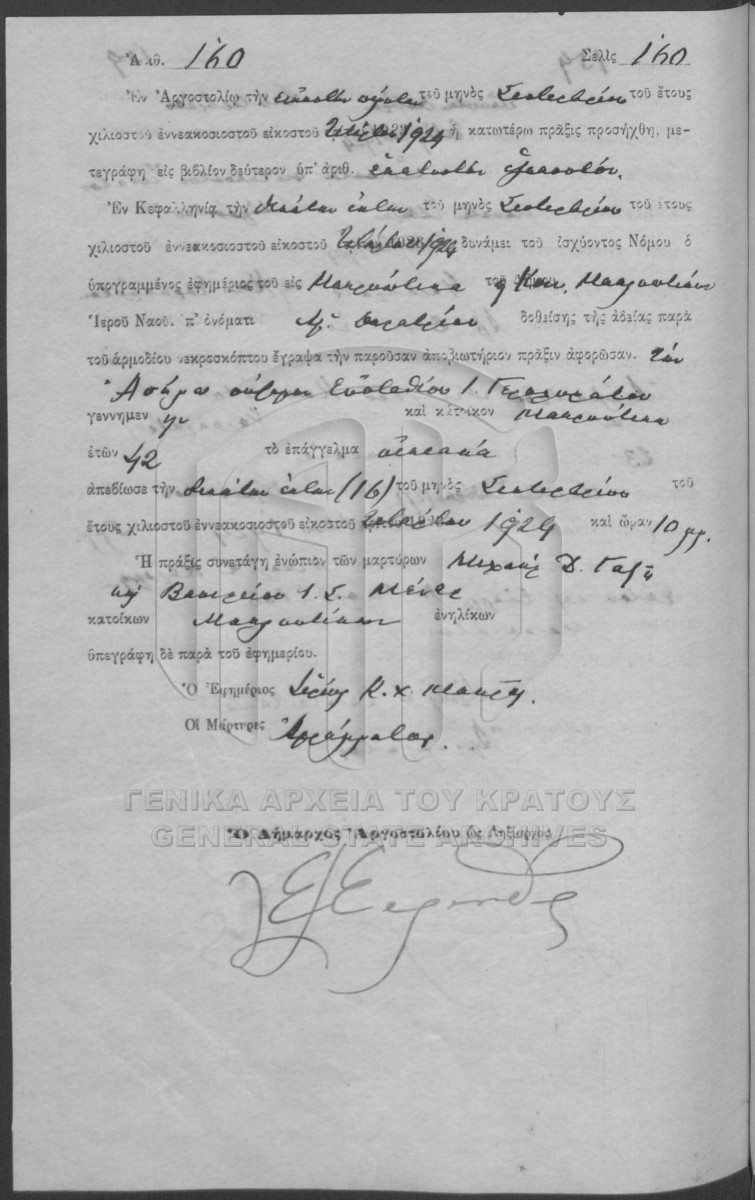 Ἀριθ. 160 Σελὶς 160
Ἐν Ἀργοστολίῳ τὴν εἰκοστὴν τοῦ μηνὸς Σεπτεμβρίου τοῦ ἔτους
χιλιοστοῦ ἐννεακοσιοστοῦ εἰκοστοῦ τετάρτου 1924 ἡ κατωτέρω πρᾶξις προσήχθη, με-
τεγράφη εἰς βιβλίον δεύτερον ὑπ' ἀριθ. ἑκατοστὸν ἑξηκοστόν.
Ἐν Κεφαλληνίᾳ τὴν δεκάτην ἕκτην τοῦ μηνὸς Σεπτεμβρίου τοῦ ἔτους
χιλιοστοῦ ἐννεακοσιοστοῦ εἰκοστοῦ τετάρτου 1924 δυνάμει τοῦ ἰσχύοντος Νόμου ὁ
ὑπογραμμένος ἐφημέριος τοῦ εἰς τοῦ Κοιν.
Ἱεροῦ Ναοῦ. π' ὀνόματι Ἁγ. δοθείσης τῆς ἀδείας παρὰ
τοῦ ἁρμοδίου νεκροσκόπτου ἔγραψα τὴν παροῦσαν ἀποβιωτήριον πρᾶξιν ἀφορῶσαν. τὴν
σύζυγον Εὐσταθίου Γ.
γεννημεν ην καὶ κάτοικον
ἐτῶν 42 τὸ ἐπάγγελμα οἰκιακά
ἀπεβίωσε τὴν δεκάτην ἕκτην (16) τοῦ μηνὸς Σεπτεμβρίου τοῦ
ἔτους χιλιοστοῦ ἐννεακοσιοστοῦ εἰκοστοῦ τετάρτου 1924 καὶ ὥραν 10 μμ.
Ἡ πρᾶξις συνετάγη ἐνώπιον τῶν μαρτύρων Μιχαὴλ Δ.
καὶ
κατοίκων ἐνηλίκων
ὑπεγράφη δὲ παρὰ τοῦ ἐφημερίου.
Ὁ Ἐφημέριος
Οἱ Μάρτυρες Ἀγράμματοι.
ΓΕΝΙΚΑ ΑΡΧΕΙΑ ΤΟΥ ΚΡΑΤΟΥΣ
GENERAL STATE ARCHIVES
Ὁ Δήμαρχος Ἀργοστολίου ὡς Ληξίαρχος